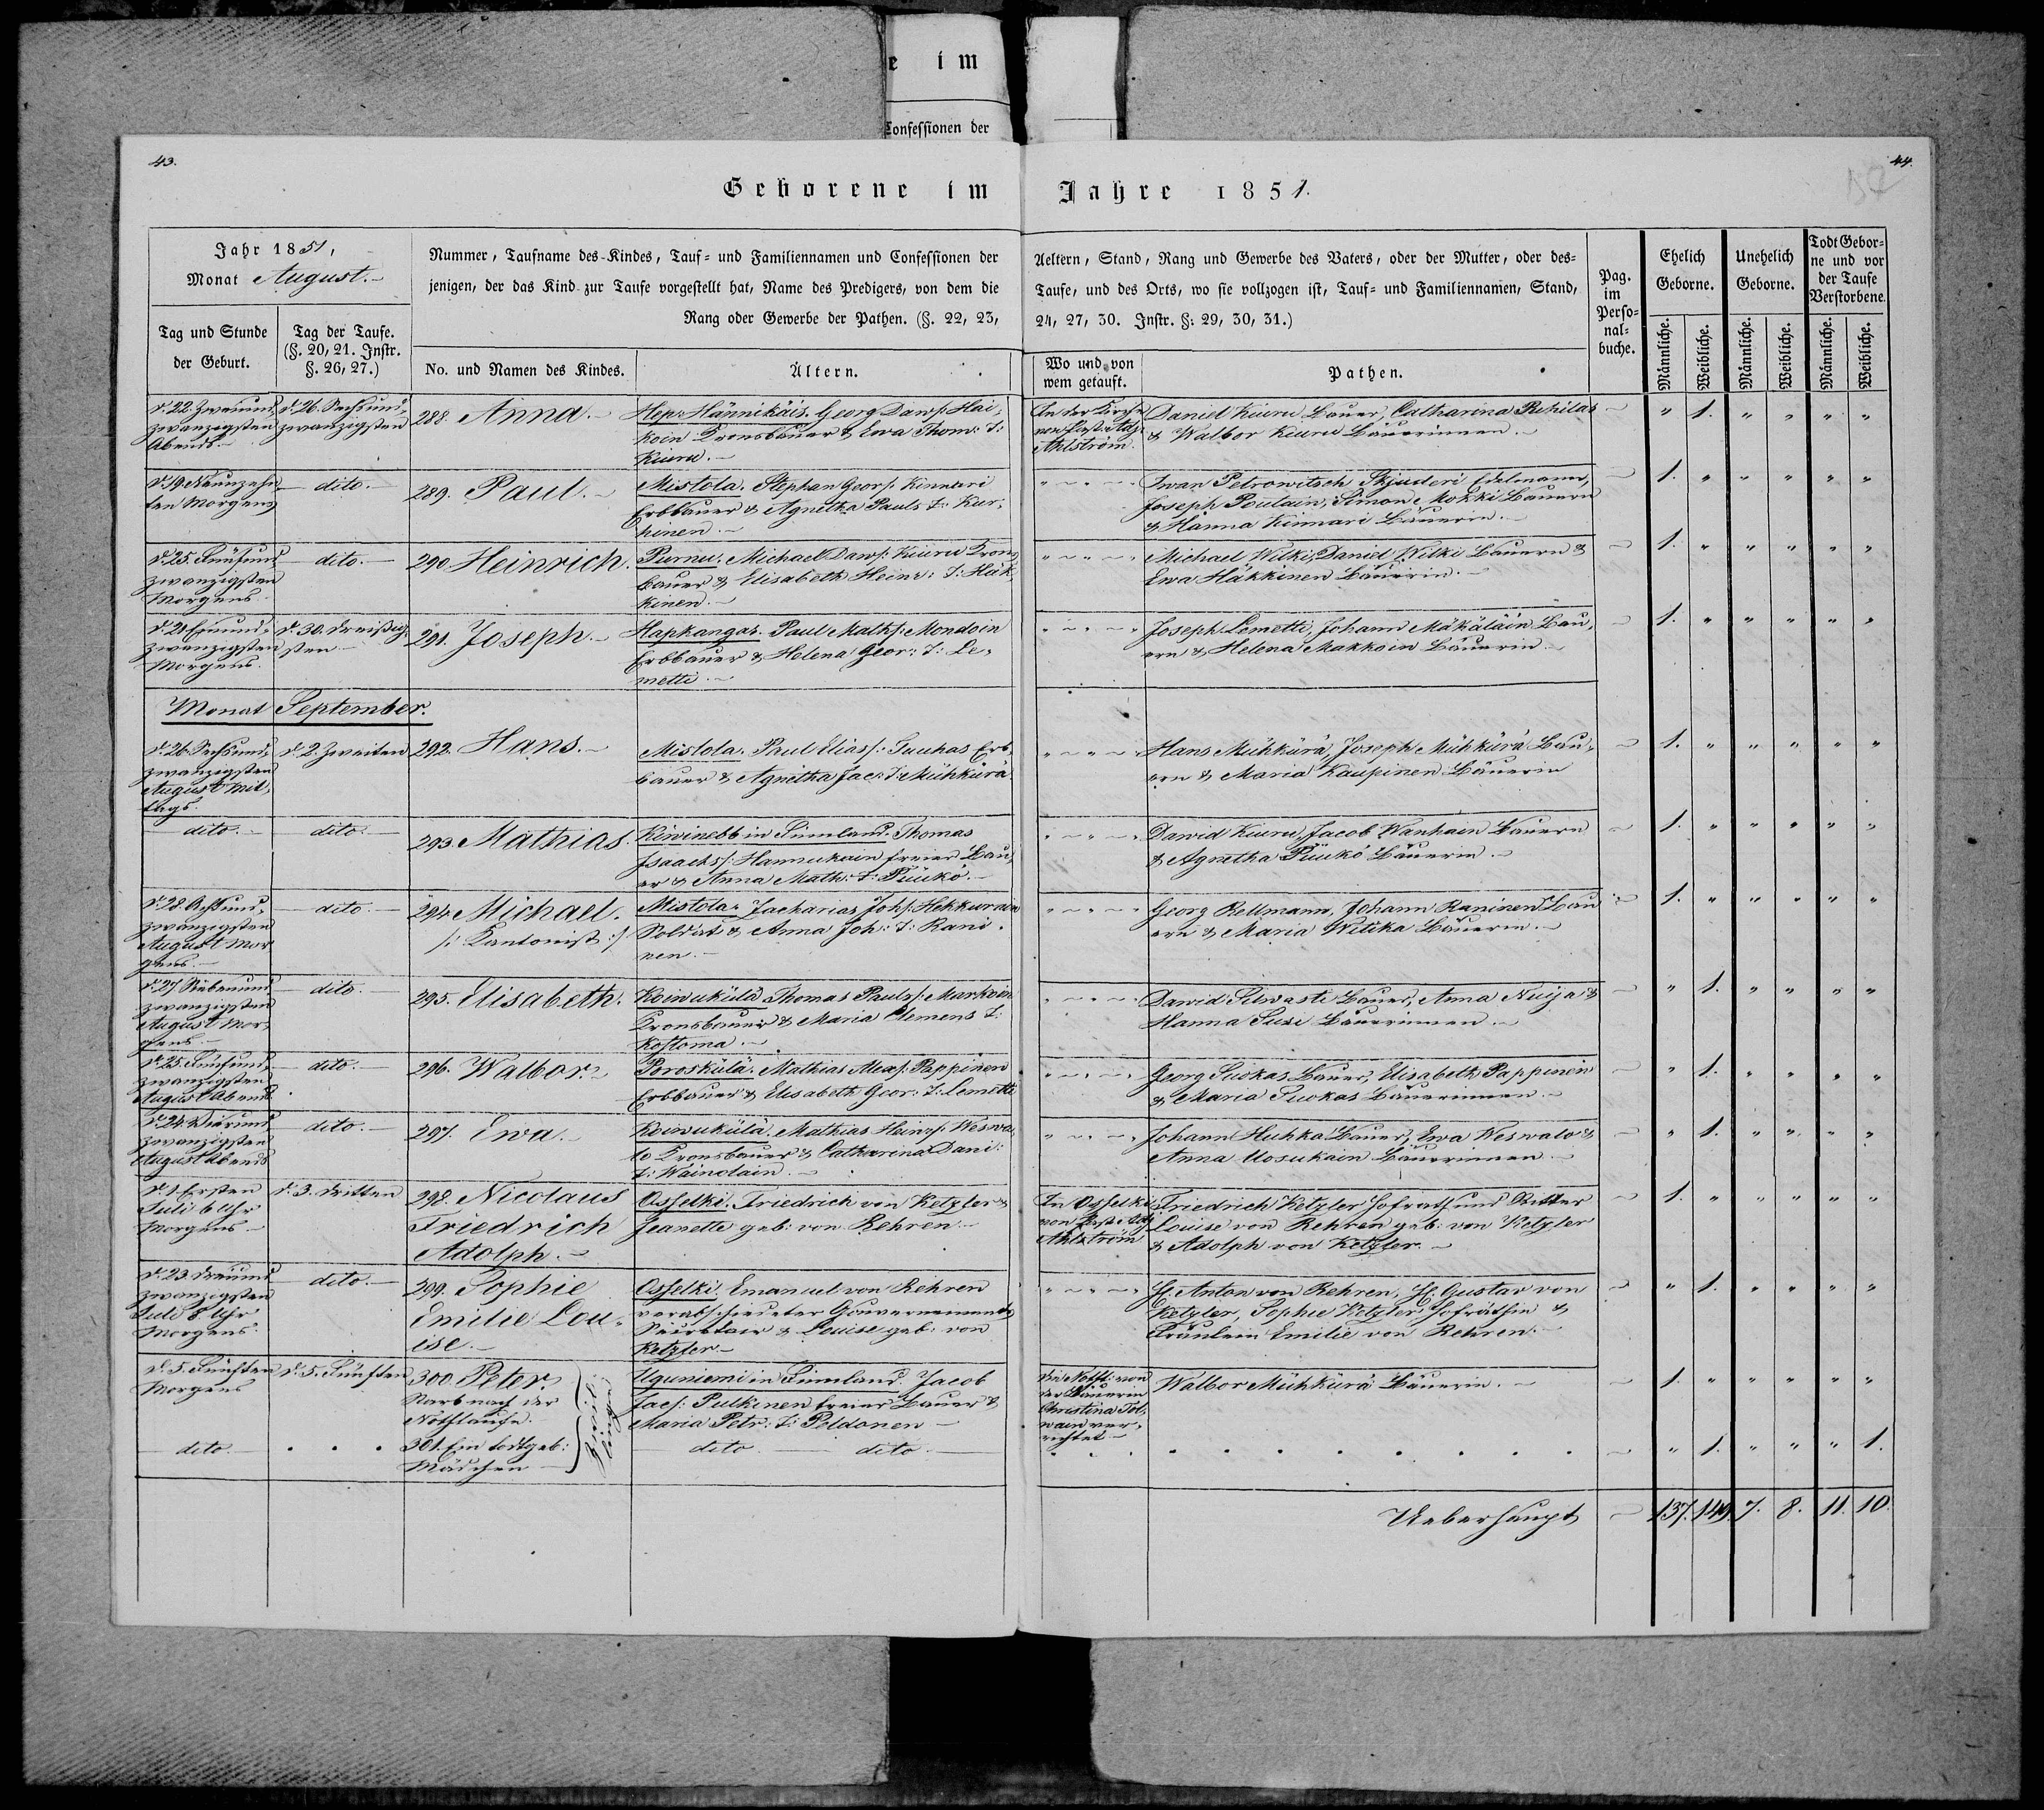 e im
Confessionen der
43.
44.
Geborene im Jahre 1851.
Jahr 1851,
Monat August.
Nummer, Taufname des Kindes, Tauf- und Familiennamen und Confessionen der
jenigen, der das Kind zur Taufe vorgestellt hat, Name des Predigers, von dem die
Rang oder Gewerbe der Pathen. (§. 22, 23,
Aeltern, Stand, Rang und Gewerbe des Vaters, oder der Mutter, oder des-
Taufe, und des Orts, wo sie vollzogen ist, Tauf- und Familiennamen, Stand,
24, 27, 30. Instr. §: 29, 30, 31.)
Pag.
im
Perso-
nal-
buche.
Ehelich
Geborne.
Unehelich
Geborne.
Todt Gebor-
ne und vor
der Taufe
Verstorbene.
Tag und Stunde
der Geburt.
Tag der Taufe.
(§. 20, 21. Instr.
§. 26, 27.)
No. und Namen des Kindes.
Ältern.
Wo und von
wem getauft.
Pathen.
Männliche.
Weibliche.
Männliche.
Weibliche.
Männliche.
Weibliche.
d. 22. Zweiund-
zwanzigsten
Abends.
d. 26. Sechsund-
zwanzigsten
288. Anna.
Hep: Hännikäis. Georg Daws: Hai-
koin Kronsbauer & Ewa Thom: T:
Kiuru.
In der Kirche
von Past: Adj:
Ahlström.
Daniel Kiuru Bauer, Catharina Rehilas
& Walbor Kiuru Bäuerinnen.
" 1. " " " "
d. 19. Neunzehn-
ten Morgens
dito.
289. Paul.
Mistola. Stephan Geors: Kinnari
Erbbauer & Agnetha Pauls T: Kur-
hinen.
Iwan Petrowitsch Skjuderi Edelmann,
Joseph Poutain, Simon Mokki Bauern
& Hanna Kinnari Bäuerin.
1. " " " " "
d. 25. Fünfund-
zwanzigsten
Morgens.
dito.
290 Heinrich.
Purnu. Michael Daws: Kiuru Krons-
bauer & Elisabeth Heinr: T: Häk-
kinen.
Michael Wilki, Daniel Wilki Bauern &
Ewa Häkkinen Bäuerin.
1. " " " " "
d. 21 Einund-
zwanzigsten
Morgens.
d. 30. Dreißig-
sten
291. Joseph.
Hapkangas. Paul Maths: Mondoin
Erbbauer & Helena Geor: T: Le-
metti.
Joseph Lemetti, Johann Mäkäläin Bau-
ern & Helena Makkoin Bäuerin.
1. " " " " "
Monat September.
d. 26. Sechsund-
zwanzigsten
August Mit-
tags.
d. 2. Zweiten
292. Hans.
Mistola. Paul Elias: Suuhas Erb-
bauer & Agnetha Jac: T: Mühkürä
Hans Mühkürä, Joseph Mühkürä Bau-
ern & Maria Kaupinen Bäuerin
1. " " " " "
dito.
dito.
293. Mathias.
Kirvinebb in Finnland. Thomas
Isaacks: Hannukain freier Bau-
er & Anna Math: T: Püükö.
Dawid Kiuru, Jacob Wanhain Bauern
& Agnetha Püükö Bäuerin.
1. " " " " "
d. 28. Achtund-
zwanzigsten
August Mor-
gens.
dito.
294. Michael.
/: Cantonist :/
Mistola. Zacharias Johs: Hekkurain
Soldat & Anna Joh: T: Rani-
nen.
Georg Rellmann, Johann Raninen Bau
ern & Maria Witika Bäuerin.
1. " " " " "
d. 27. Siebenund-
zwanzigsten
August Mor-
gens.
dito.
295. Elisabeth.
Koiwuküla Thomas Pauls: Markoin
Kronsbauer & Maria Clemens T:
Kostoma.
Dawid Silwasti Bauer, Anna Nuija &
Hanna Susi Bäuerinnen.
" 1. " " " "
d. 25. Fünfund-
zwanzigsten
August Abends
dito.
296. Walbor.
Porosküla. Mathias Alexs: Pappinen
Erbbauer & Elisabeth Geor: T: Lemetti
Georg Suokas Bauer, Elisabeth Pappinen
& Maria Suokas Bäuerinnen.
" 1. " " " "
d. 24. Vierund-
zwanzigsten
August Abends
dito.
297. Ewa.
Koiwuküla. Mathias Heinrs: Weswa-
lo Kronsbauer & Catharina Dani:
T: Wäinolain.
Johann Huhka Bauer, Ewa Weswalo &
Anna Uosukain Bäuerinnen.
" 1. " " " "
d. 1. Ersten
Juli 6 Uhr
Morgens
d. 3. Dritten
298. Nicolaus
Friedrich
Adolph.
Osselki. Friedrich von Ketzler &
Jeanette geb: von Rehren
In Osselki
von Past: Adj:
Ahlström
Friedrich Ketzler Hofrath und Ritter
Louise von Rehren geb: von Ketzler
& Adolph von Ketzler.
1. " " " " "
d. 23. Dreiund-
zwanzigsten
Juli 8 Uhr
Morgens.
dito.
299. Sophie
Emilie Lou-
ise.
Osselki. Emanuel von Rehren
verabschiedeter Gouvernements
Secretair & Louise geb: von
Ketzler
H. Anton von Rehren, H. Gustav von
Ketzler, Sophie Ketzler Hofräthin &
Fräulein Emilie von Rehren.
" 1. " " " "
d. 5. Fünften
Morgens
d. 5. Fünften
300. Peter.
Starb nach der
Nothtaufe.
Zwil-
linge.
Uguniemi in Finnland. Jacob
Jacs: Pulkinen freier Bauer &
Maria Petr: T: Peldonen
Die Notht: von
der Bäuerin
Christina Tol-
wain ver-
richtet
Walbor Mühkürä Bäuerin.
1. " " " " "
dito.
301. Ein todtgeb:
Mädchen
dito dito.
" 1. " " " 1.
Ueberhaupt 137. 149. 7. 8. 11. 10.